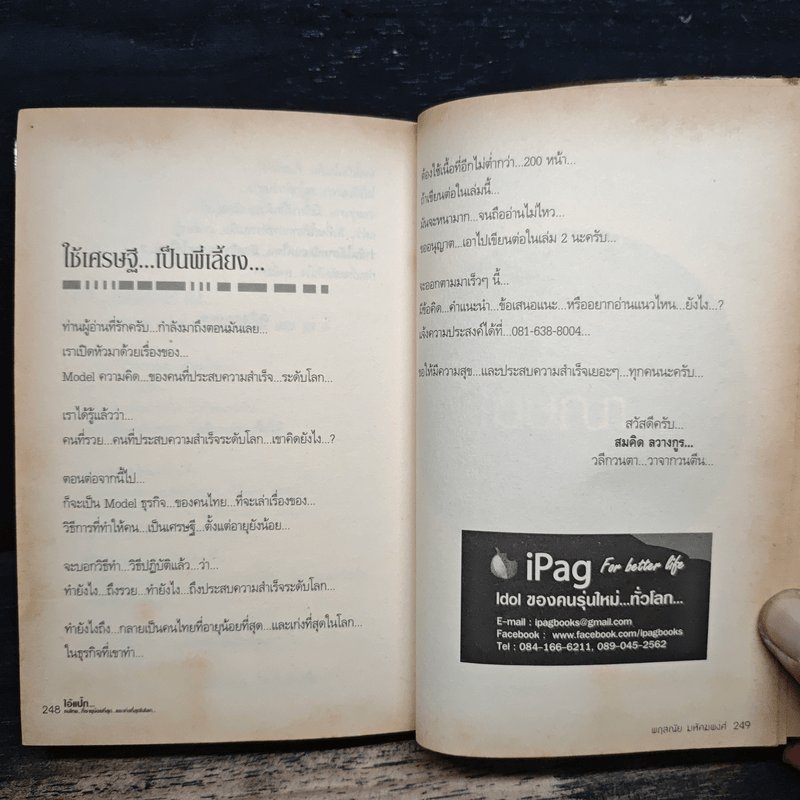 ใช้เศรษฐี...เป็นพี่เลี้ยง...
ท่านผู้อ่านที่รักครับ...กำลังมาถึงตอนมันเลย...
เราเปิดหัวมาด้วยเรื่องของ...
Model ความคิด...ของคนที่ประสบความสำเร็จ...ระดับโลก...
เราได้รู้แล้วว่า...
คนที่รวย...คนที่ประสบความสำเร็จระดับโลก...เขาคิดยังไง...?
ตอนต่อจากนี้ไป...
ก็จะเป็น Model ธุรกิจ...ของคนไทย...ที่จะเล่าเรื่องของ...
วิธีการที่ทำให้คน...เป็นเศรษฐี...ตั้งแต่อายุยังน้อย...
จะบอกวิธีทำ...วิธีปฏิบัติแล้ว...ว่า...
ทำยังไง...ถึงรวย...ทำยังไง...ถึงประสบความสำเร็จระดับโลก...
ทำยังไงถึง...กลายเป็นคนไทยที่อายุน้อยที่สุด...และเก่งที่สุดในโลก...
ในธุรกิจที่เขาทำ...
248 ไอ้แป๊ก...
ต้องใช้เนื้อที่อีกไม่ต่ำกว่า...200 หน้า...
ถ้าเขียนต่อในเล่มนี้...
มันจะหนามาก...จนถืออ่านไม่ไหว...
ขออนุญาต...เอาไปเขียนต่อในเล่ม 2 นะครับ...
จะออกตามมาเร็วๆ นี้...
มีข้อคิด...คำแนะนำ...ข้อเสนอแนะ...หรืออยากอ่านแนวไหน...ยังไง...?
แจ้งความประสงค์ได้ที่...081-638-8004...
ขอให้มีความสุข...และประสบความสำเร็จเยอะๆ...ทุกคนนะครับ...
สวัสดีครับ...
สมคิด ลวางกูร...
วลีกวนตา...วาจากวนตีน...
iPag For better life
Idol ของคนรุ่นใหม่...ทั่วโลก...
E-mail : ipagbooks@gmail.com
Facebook : www.facebook.com/ipagbooks
Tel : 084-166-6211, 089-045-2562
พฤสณัย มหัคฆพงศ์ 249